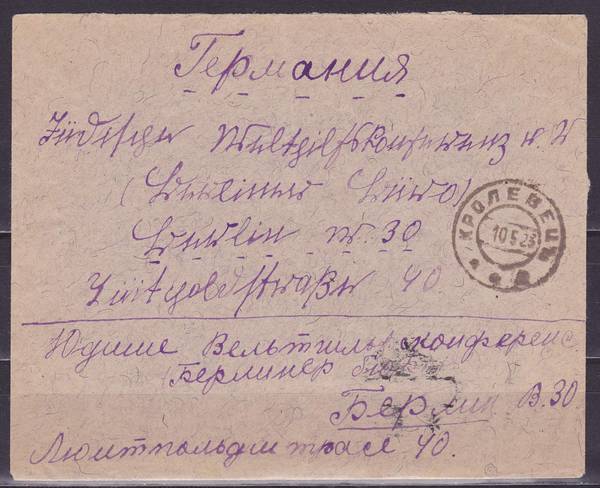 Германия
Jüdischer Welthilfskonferenz e. V
(Berliner Büro)
Berlin W. 30
Luitpoldstraßer 40
КРОЛЕВЕЦЪ
10 5 23
Юдише Вельтхильфсконференс
(Берлинер
Берлин В. 30
Люитпольдштрасе 40.